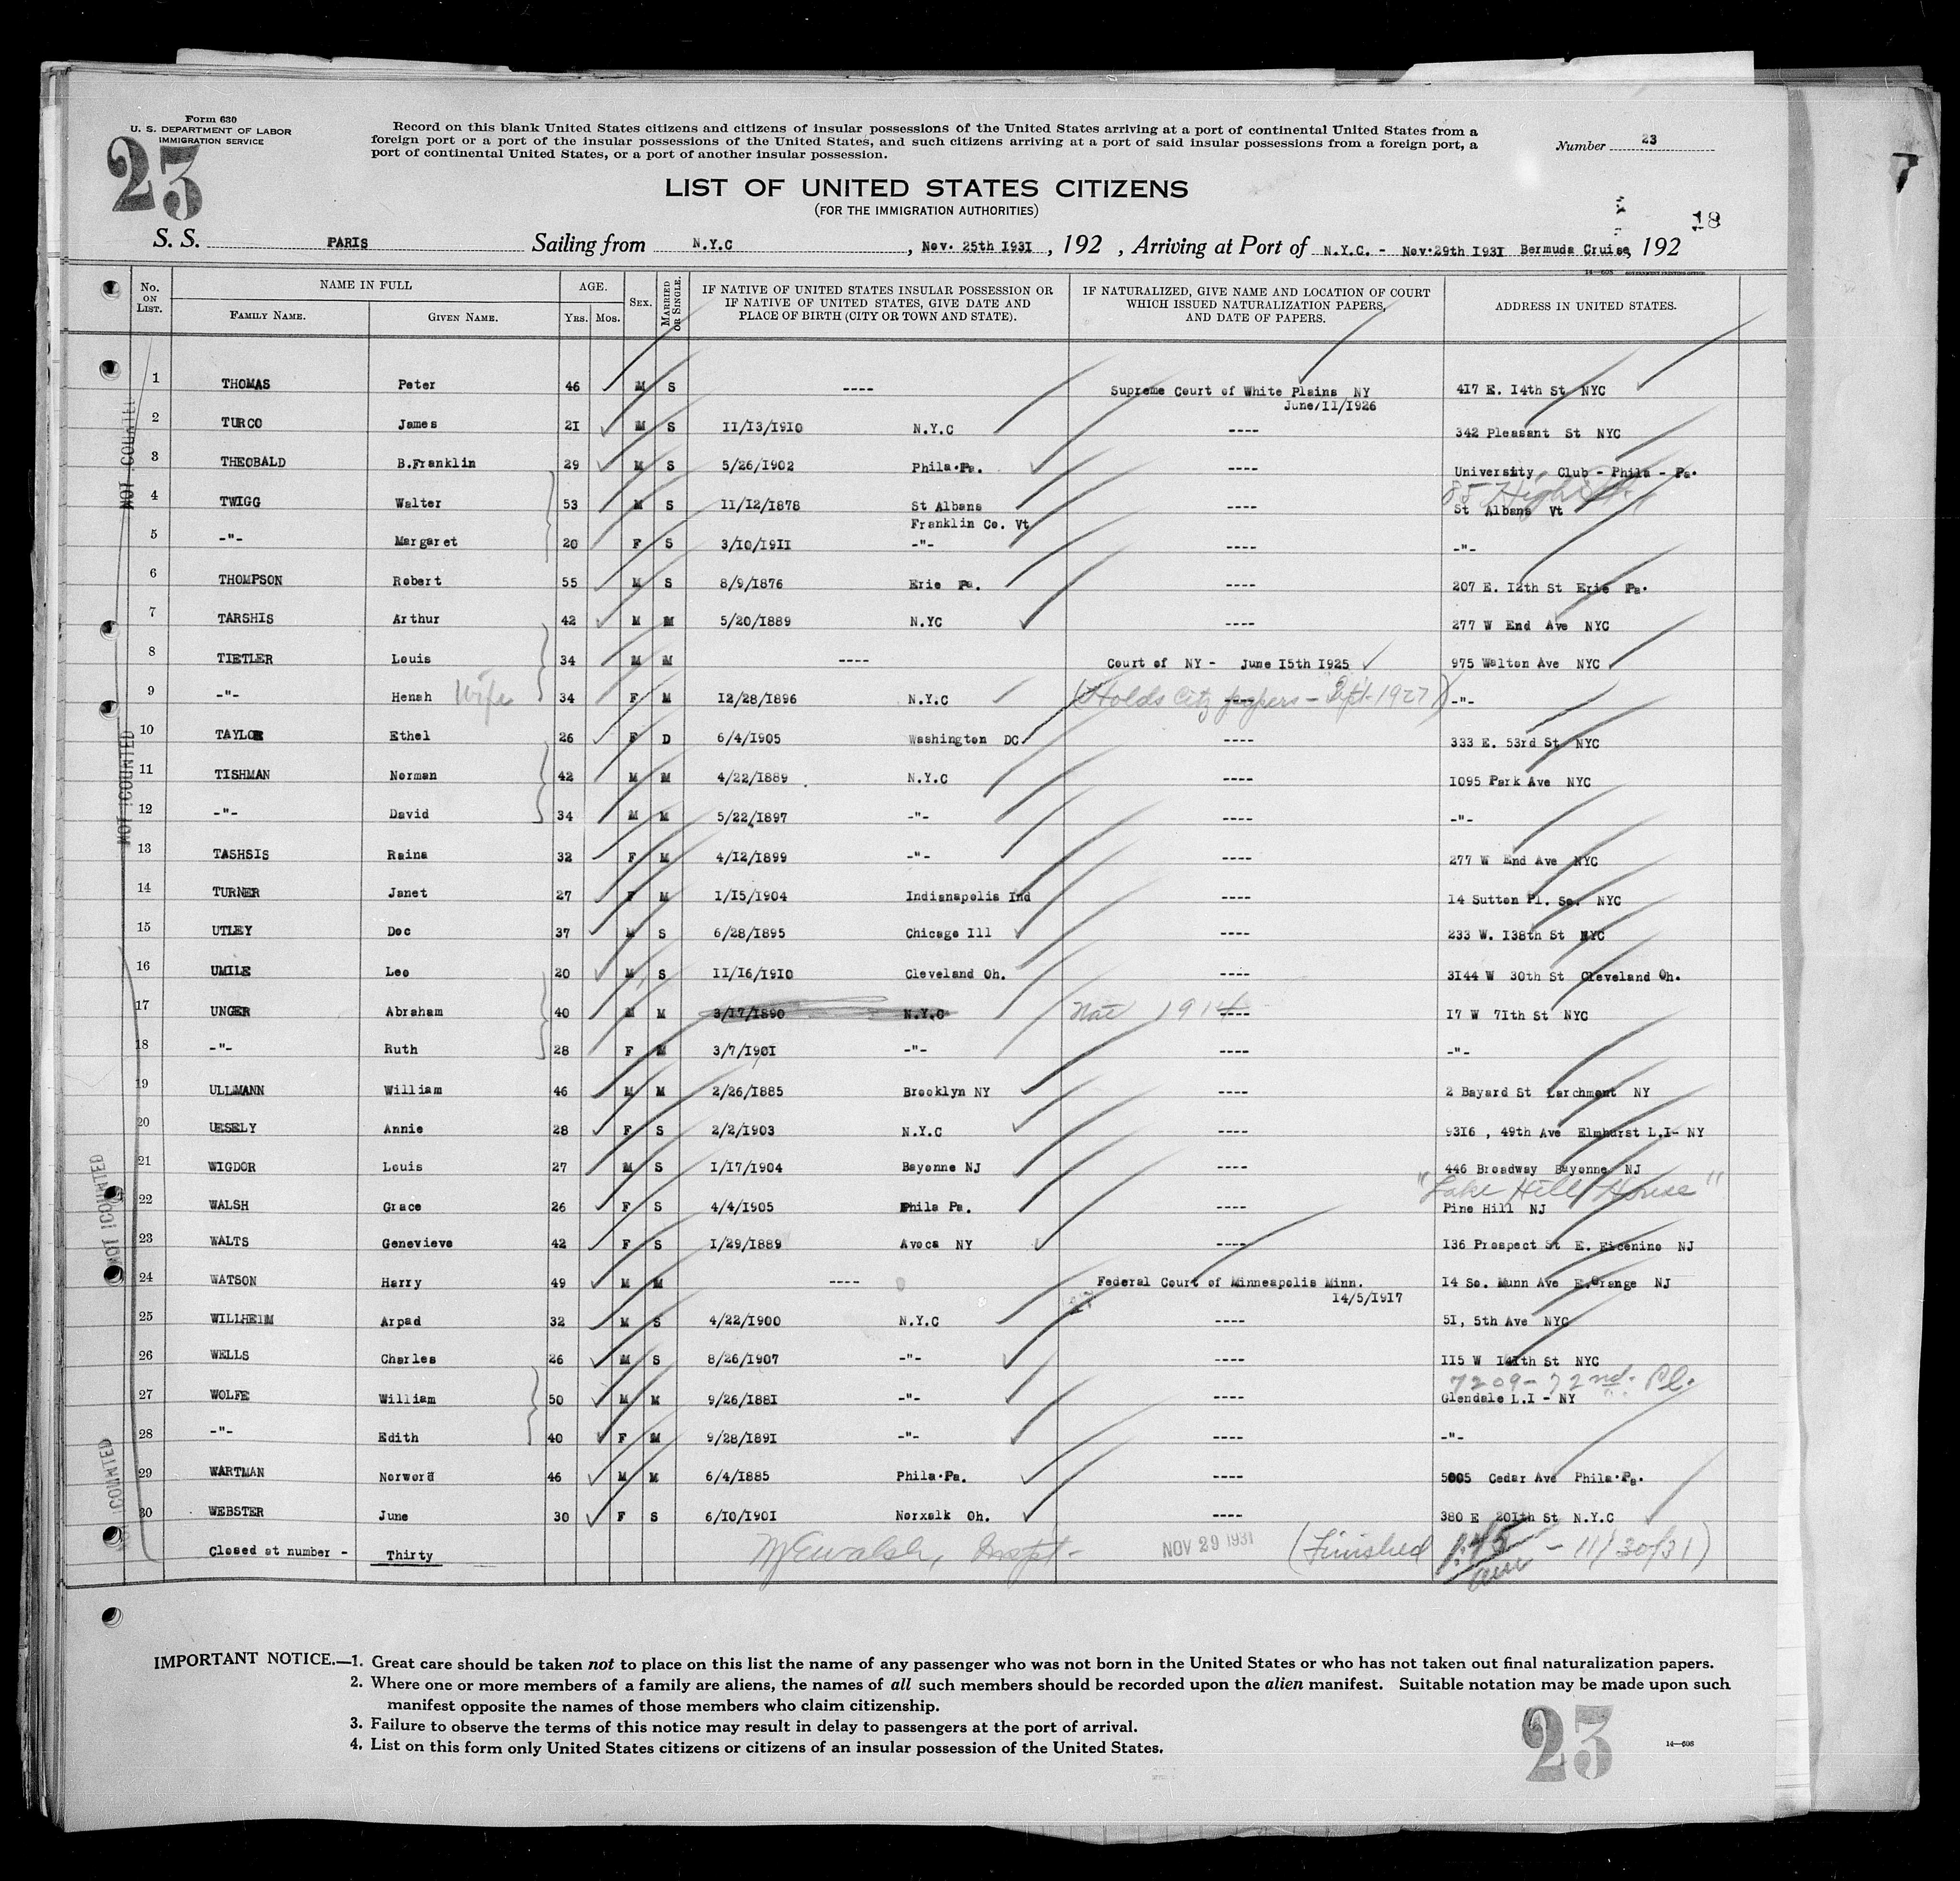 Form 630
U. S. DEPARTMENT OF LABOR
IMMIGRATION SERVICE
23
Record on this blank United States citizens and citizens of insular possessions of the United States arriving at a port of continental United States from a
foreign port or a port of the insular possessions of the United States, and such citizens arriving at a port of said insular possessions from a foreign port, a
port of continental United States, or a port of another insular possession.
Number 23
7
LIST OF UNITED STATES CITIZENS
(FOR THE IMMIGRATION AUTHORITIES)
18
S. S. PARIS Sailing from N.Y.C , Nov. 25th 1931 , 192 , Arriving at Port of N.Y.C. - Nov.29th 1931 Bermuda Cruise, 192
14—608 GOVERNMENT PRINTING OFFICE
No. ON LIST. NAME IN FULL FAMILY NAME. GIVEN NAME. AGE. YRS. MOS. SEX. MARRIED OR SINGLE. IF NATIVE OF UNITED STATES INSULAR POSSESSION OR IF NATIVE OF UNITED STATES, GIVE DATE AND PLACE OF BIRTH (CITY OR TOWN AND STATE). IF NATURALIZED, GIVE NAME AND LOCATION OF COURT WHICH ISSUED NATURALIZATION PAPERS, AND DATE OF PAPERS. ADDRESS IN UNITED STATES.
1 THOMAS Peter 46 M S ---- Supreme Court of White Plains NY 417 E. 14th St NYC
June/11/1926
2 TURCO James 21 M S 11/13/1910 N.Y.C ---- 342 Pleasant St NYC
3 THEOBALD B.Franklin 29 M S 5/26/1902 Phila.Pa. ---- University Club - Phila - Pa.
85 High St.
4 TWIGG Walter 53 M S 11/12/1878 St Albans ---- St Albans Vt
Franklin Co. Vt
5 -"- Margaret 20 F S 3/10/1911 -"- ---- -"-
6 THOMPSON Robert 55 M S 8/9/1876 Erie Pa. ---- 207 E. 12th St Erie Pa.
7 TARSHIS Arthur 42 M M 5/20/1889 N.YC ---- 277 W End Ave NYC
8 TIETLER Louis 34 M M ---- Court of NY - June 15th 1925 975 Walton Ave NYC
9 -"- Henah Wife 34 F M 12/28/1896 N.Y.C ---- (Holds City papers - Sept. 1927) -"-
10 TAYLOR Ethel 26 F D 6/4/1905 Washington DC ---- 333 E. 53rd St NYC
11 TISHMAN Norman 42 M M 4/22/1889 N.Y.C ---- 1095 Park Ave NYC
12 -"- David 34 M M 5/22/1897 -"- ---- -"-
13 TASHSIS Raina 32 F M 4/12/1899 -"- ---- 277 W End Ave NYC
14 TURNER Janet 27 F M 1/15/1904 Indianapolis Ind ---- 14 Sutton Pl. So. NYC
15 UTLEY Doc 37 M S 6/28/1895 Chicago Ill ---- 233 W. 138th St NYC
16 UMILE Leo 20 M S 11/16/1910 Cleveland Oh. ---- 3144 W 30th St Cleveland Oh.
17 UNGER Abraham 40 M M 3/17/1890 N.Y.C Nat 1914 ---- 17 W 71th St NYC
18 -"- Ruth 28 F M 3/7/1901 -"- ---- -"-
19 ULLMANN William 46 M M 2/26/1885 Brooklyn NY ---- 2 Bayard St Larchmont NY
20 UESELY Annie 28 F S 2/2/1903 N.Y.C ---- 9316 , 49th Ave Elmhurst L.I- NY
21 WIGDOR Louis 27 M S 1/17/1904 Bayonne NJ ---- 446 Broadway Bayonne NJ
"Lake Hill House"
22 WALSH Grace 26 F S 4/4/1905 Phila Pa. ---- Pine Hill NJ
23 WALTS Genevieve 42 F S 1/29/1889 Avoca NY ---- 136 Prospect St E. Eicenino NJ
24 WATSON Harry 49 M M ---- Federal Court of Minneapolis Minn. 14 So. Munn Ave E.Orange NJ
14/5/1917
25 WILLHEIM Arpad 32 M S 4/22/1900 N.Y.C ---- 51, 5th Ave NYC
26 WELLS Charles 26 M S 8/26/1907 -"- ---- 115 W 141th St NYC
7209-72nd. Pl.
27 WOLFE William 50 M M 9/26/1881 -"- ---- Glendale L.I - NY
28 -"- Edith 40 F M 9/28/1891 -"- ---- -"-
29 WARTMAN Norword 46 M M 6/4/1885 Phila.Pa. ---- 5005 Cedar Ave Phila.Pa.
30 WEBSTER June 30 F S 6/10/1901 Norxalk Oh. ---- 380 E 201th St N.Y.C
Closed at number - Thirty
Inspt- NOV 29 1931 (Finished 1:45 am - 11/30/31)
NOT COUNTED
NOT COUNTED
NOT COUNTED
NOT COUNTED
IMPORTANT NOTICE.—1. Great care should be taken not to place on this list the name of any passenger who was not born in the United States or who has not taken out final naturalization papers.
2. Where one or more members of a family are aliens, the names of all such members should be recorded upon the alien manifest. Suitable notation may be made upon such
manifest opposite the names of those members who claim citizenship.
3. Failure to observe the terms of this notice may result in delay to passengers at the port of arrival.
4. List on this form only United States citizens or citizens of an insular possession of the United States.
23
14—608